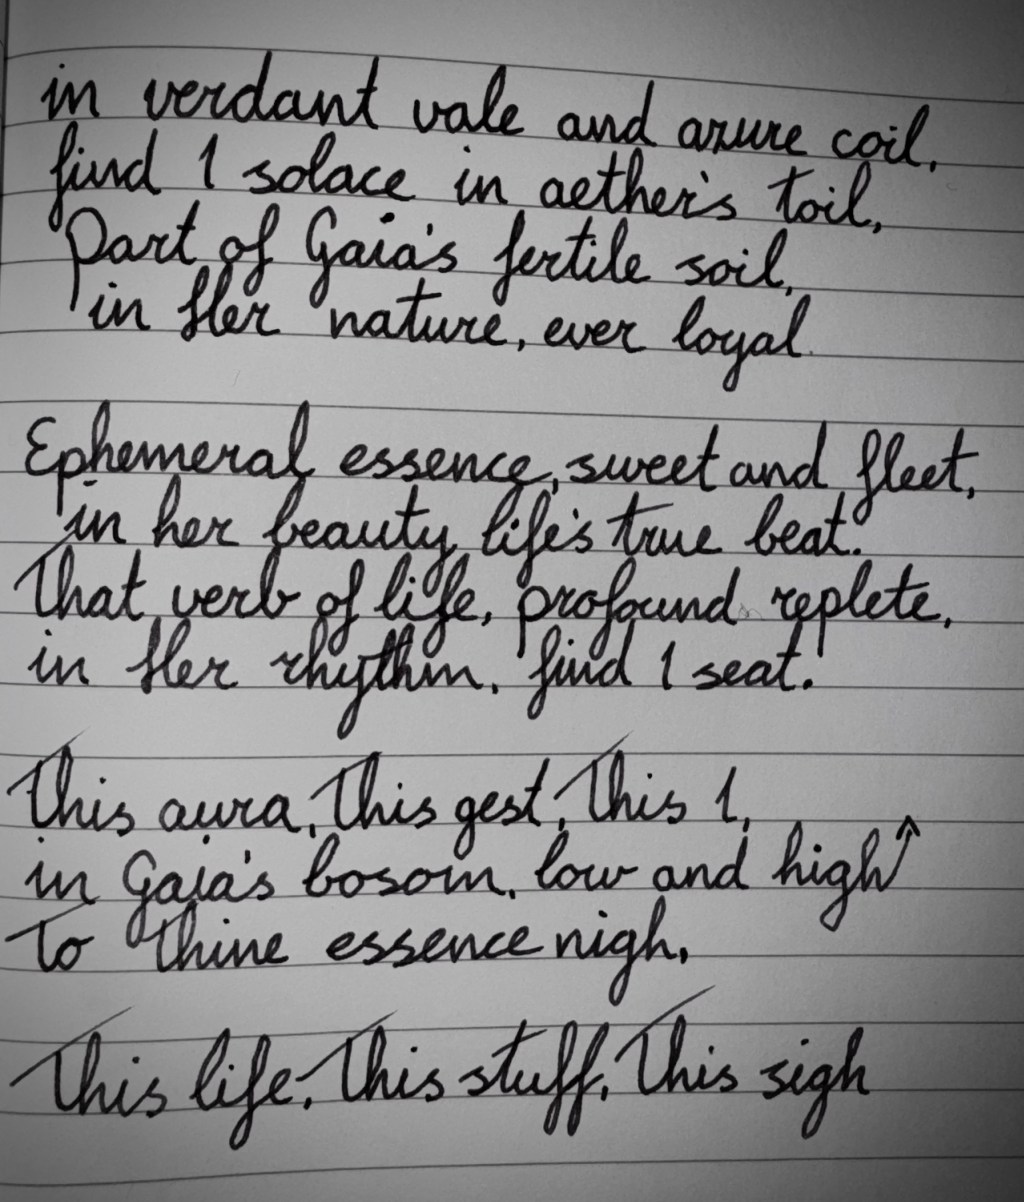 in verdant vale and azure coil,
find I solace in aether's toil,
Part of Gaia's fertile soil,
in Her nature, ever loyal.
Ephemeral essence, sweet and fleet,
in her beauty, life's true beat.
That verb of life, profound replete,
in Her rhythm, find I seat.
This aura, This gest, This I,
in Gaia's bosom, low and high↑
To thine essence nigh,
This life, This stuff, This sigh